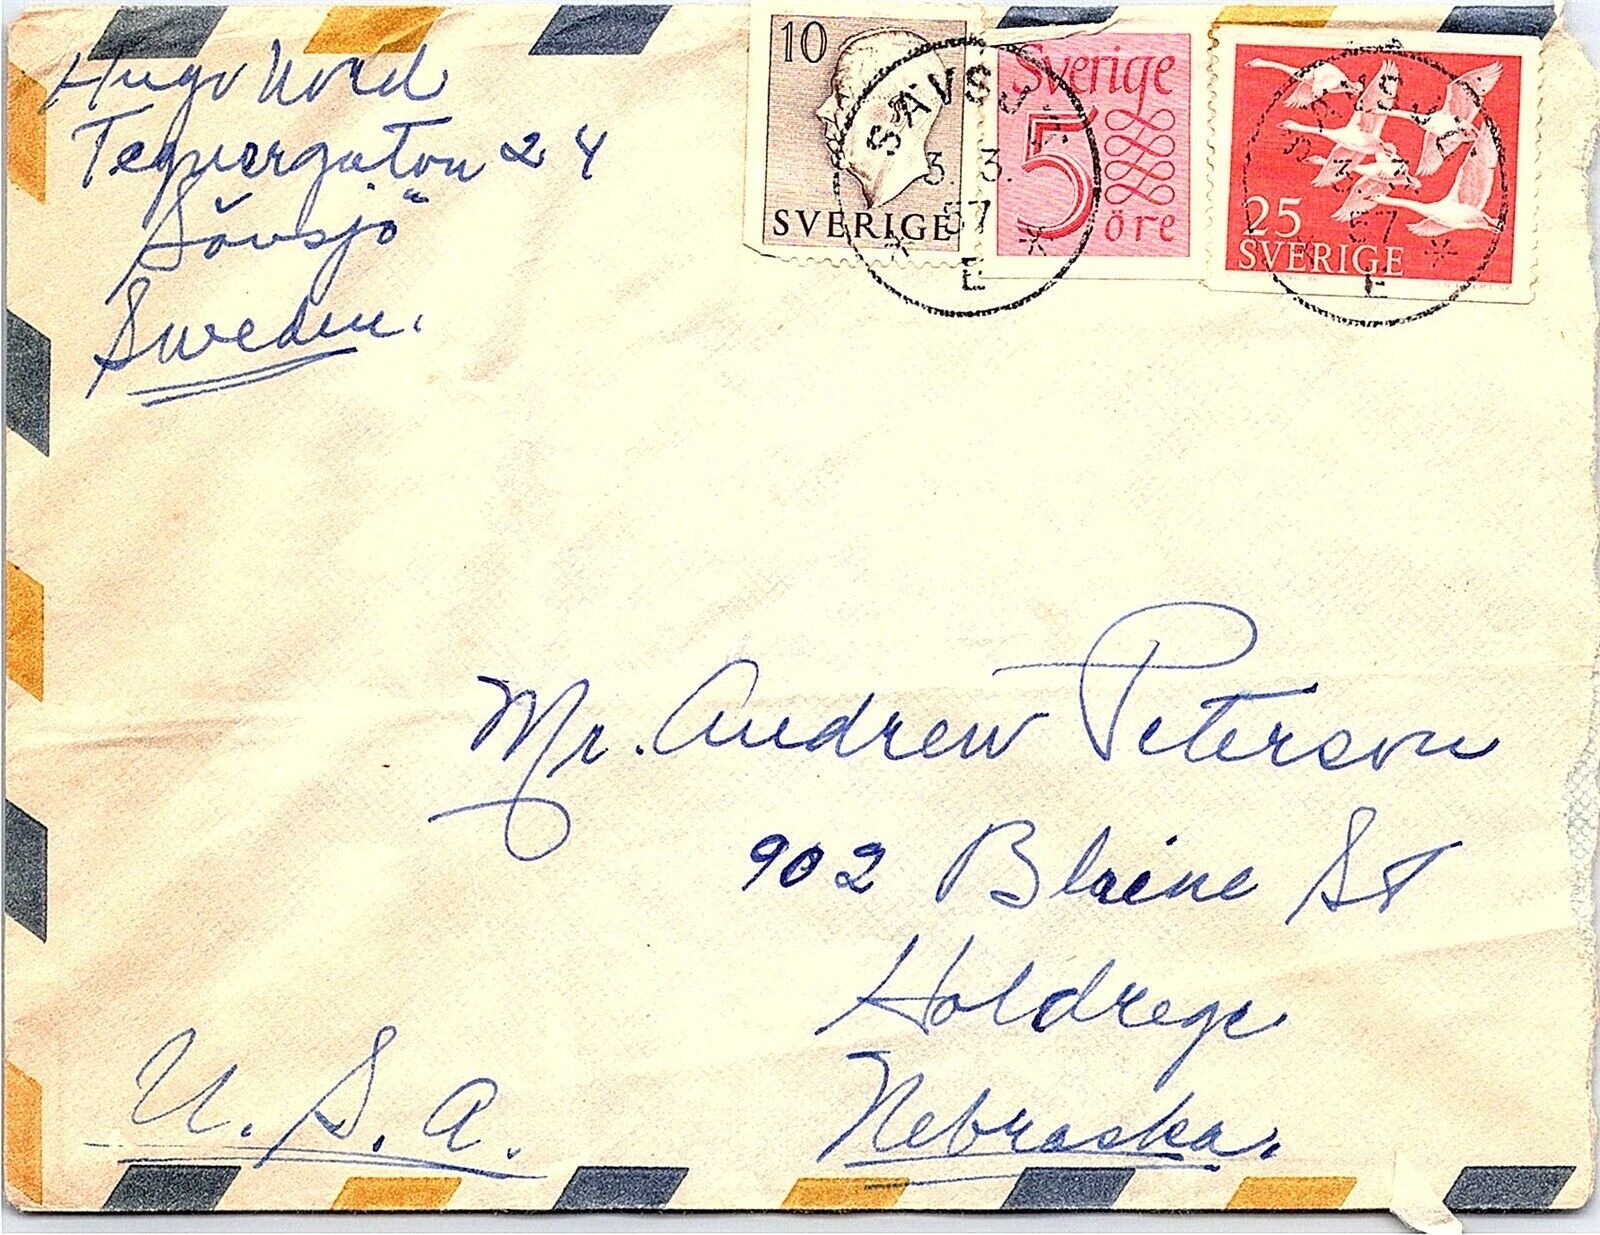 Hugo Nord
Tegnergatan 24
Sävsjö
Sweden.
10
SVERIGE
Sverige
5
öre
25
SVERIGE
SÄVSJÖ
3. 3.
57
* *
E
SÄVSJÖ
3. 3.
57
*
E
Mr. Andrew Peterson
902 Blaine St
Holdrege
Nebraska.
U. S. A.